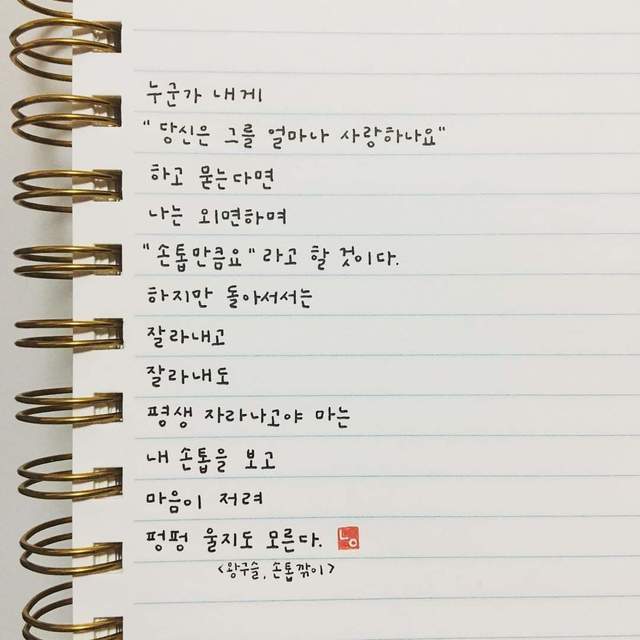 누군가 내게
"당신은 그를 얼마나 사랑하나요"
하고 묻는다면
나는 외면하며
"손톱만큼요"라고 할 것이다.
하지만 돌아서서는
잘라내고
잘라내도
평생 자라나고야 마는
내 손톱을 보고
마음이 저려
펑펑 울지도 모른다.
<왕구슬, 손톱깎이>